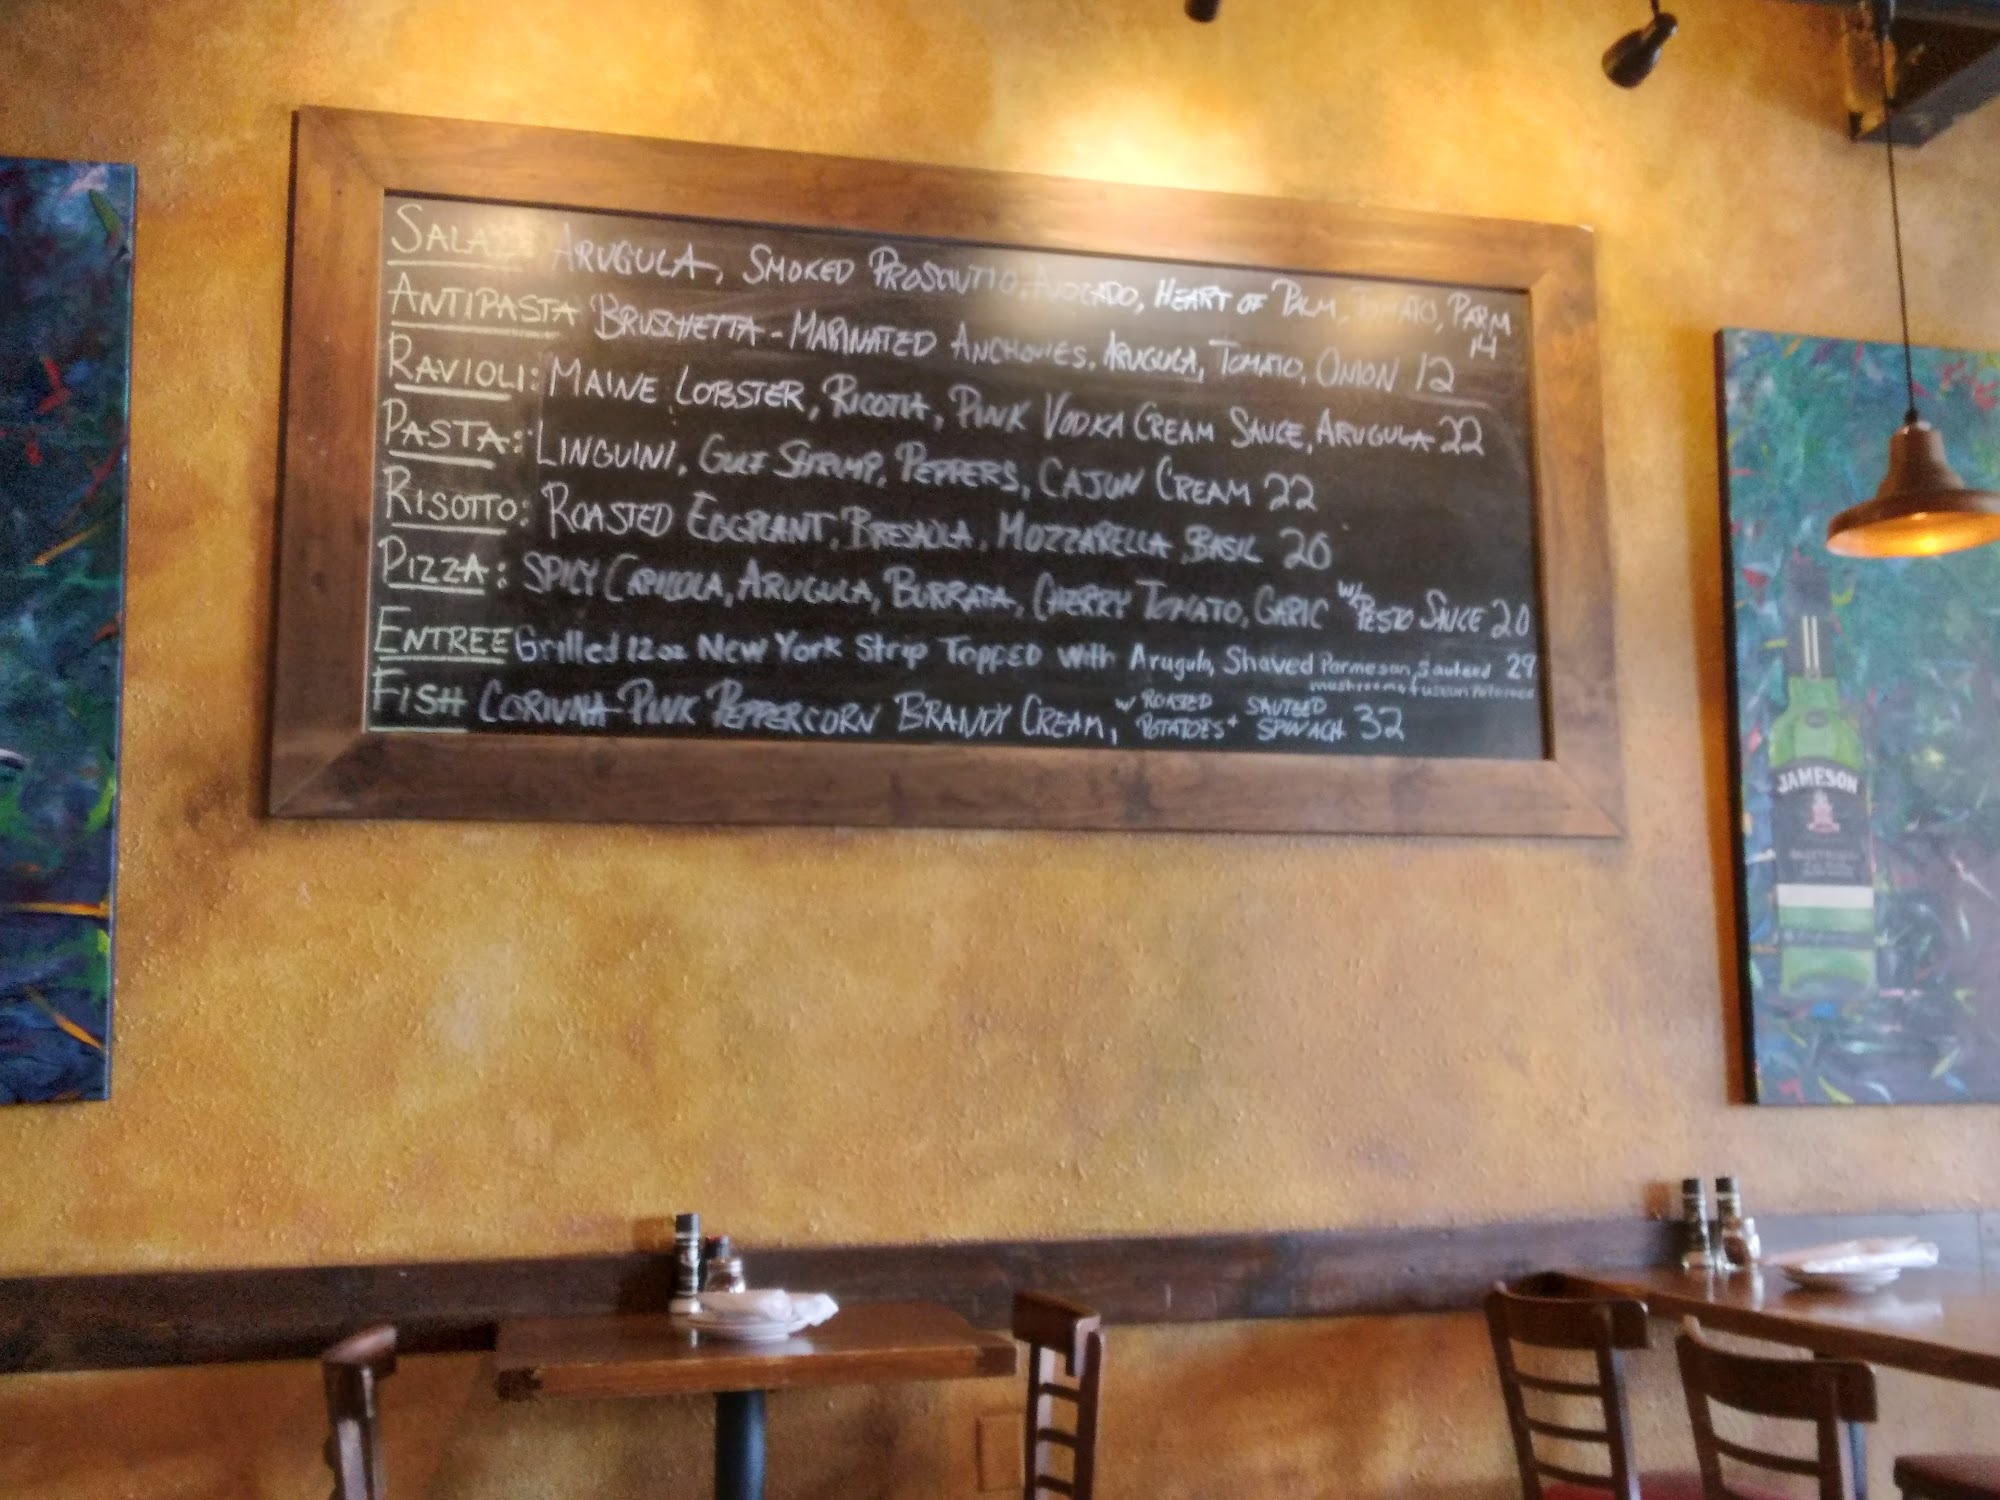 SALAD: ARUGULA, SMOKED PROSCIUTTO, AVOCADO, HEART OF PALM, TOMATO, PARM
14
ANTIPASTA BRUSCHETTA - MARINATED ANCHOVIES, ARUGULA, TOMATO, ONION 12
RAVIOLI: MAINE LOBSTER, RICOTTA, PINK VODKA CREAM SAUCE, ARUGULA 22
PASTA: LINGUINI, GULF SHRIMP, PEPPERS, CAJUN CREAM 22
RISOTTO: ROASTED EGGPLANT, BRESAOLA, MOZZARELLA BASIL 20
PIZZA: SPICY CAPICOLA, ARUGULA, BURRATA, CHERRY TOMATO, GARLIC W/ PESTO SAUCE 20
ENTREE Grilled 12oz New York Strip Topped with Arugula, Shaved Parmesan, Sauteed 29
mushrooms,
FISH CORIVNA PINK PEPPERCORN BRANDY CREAM, w/ ROASTED POTATOES + SAUTEED SPINACH 32
JAMESON